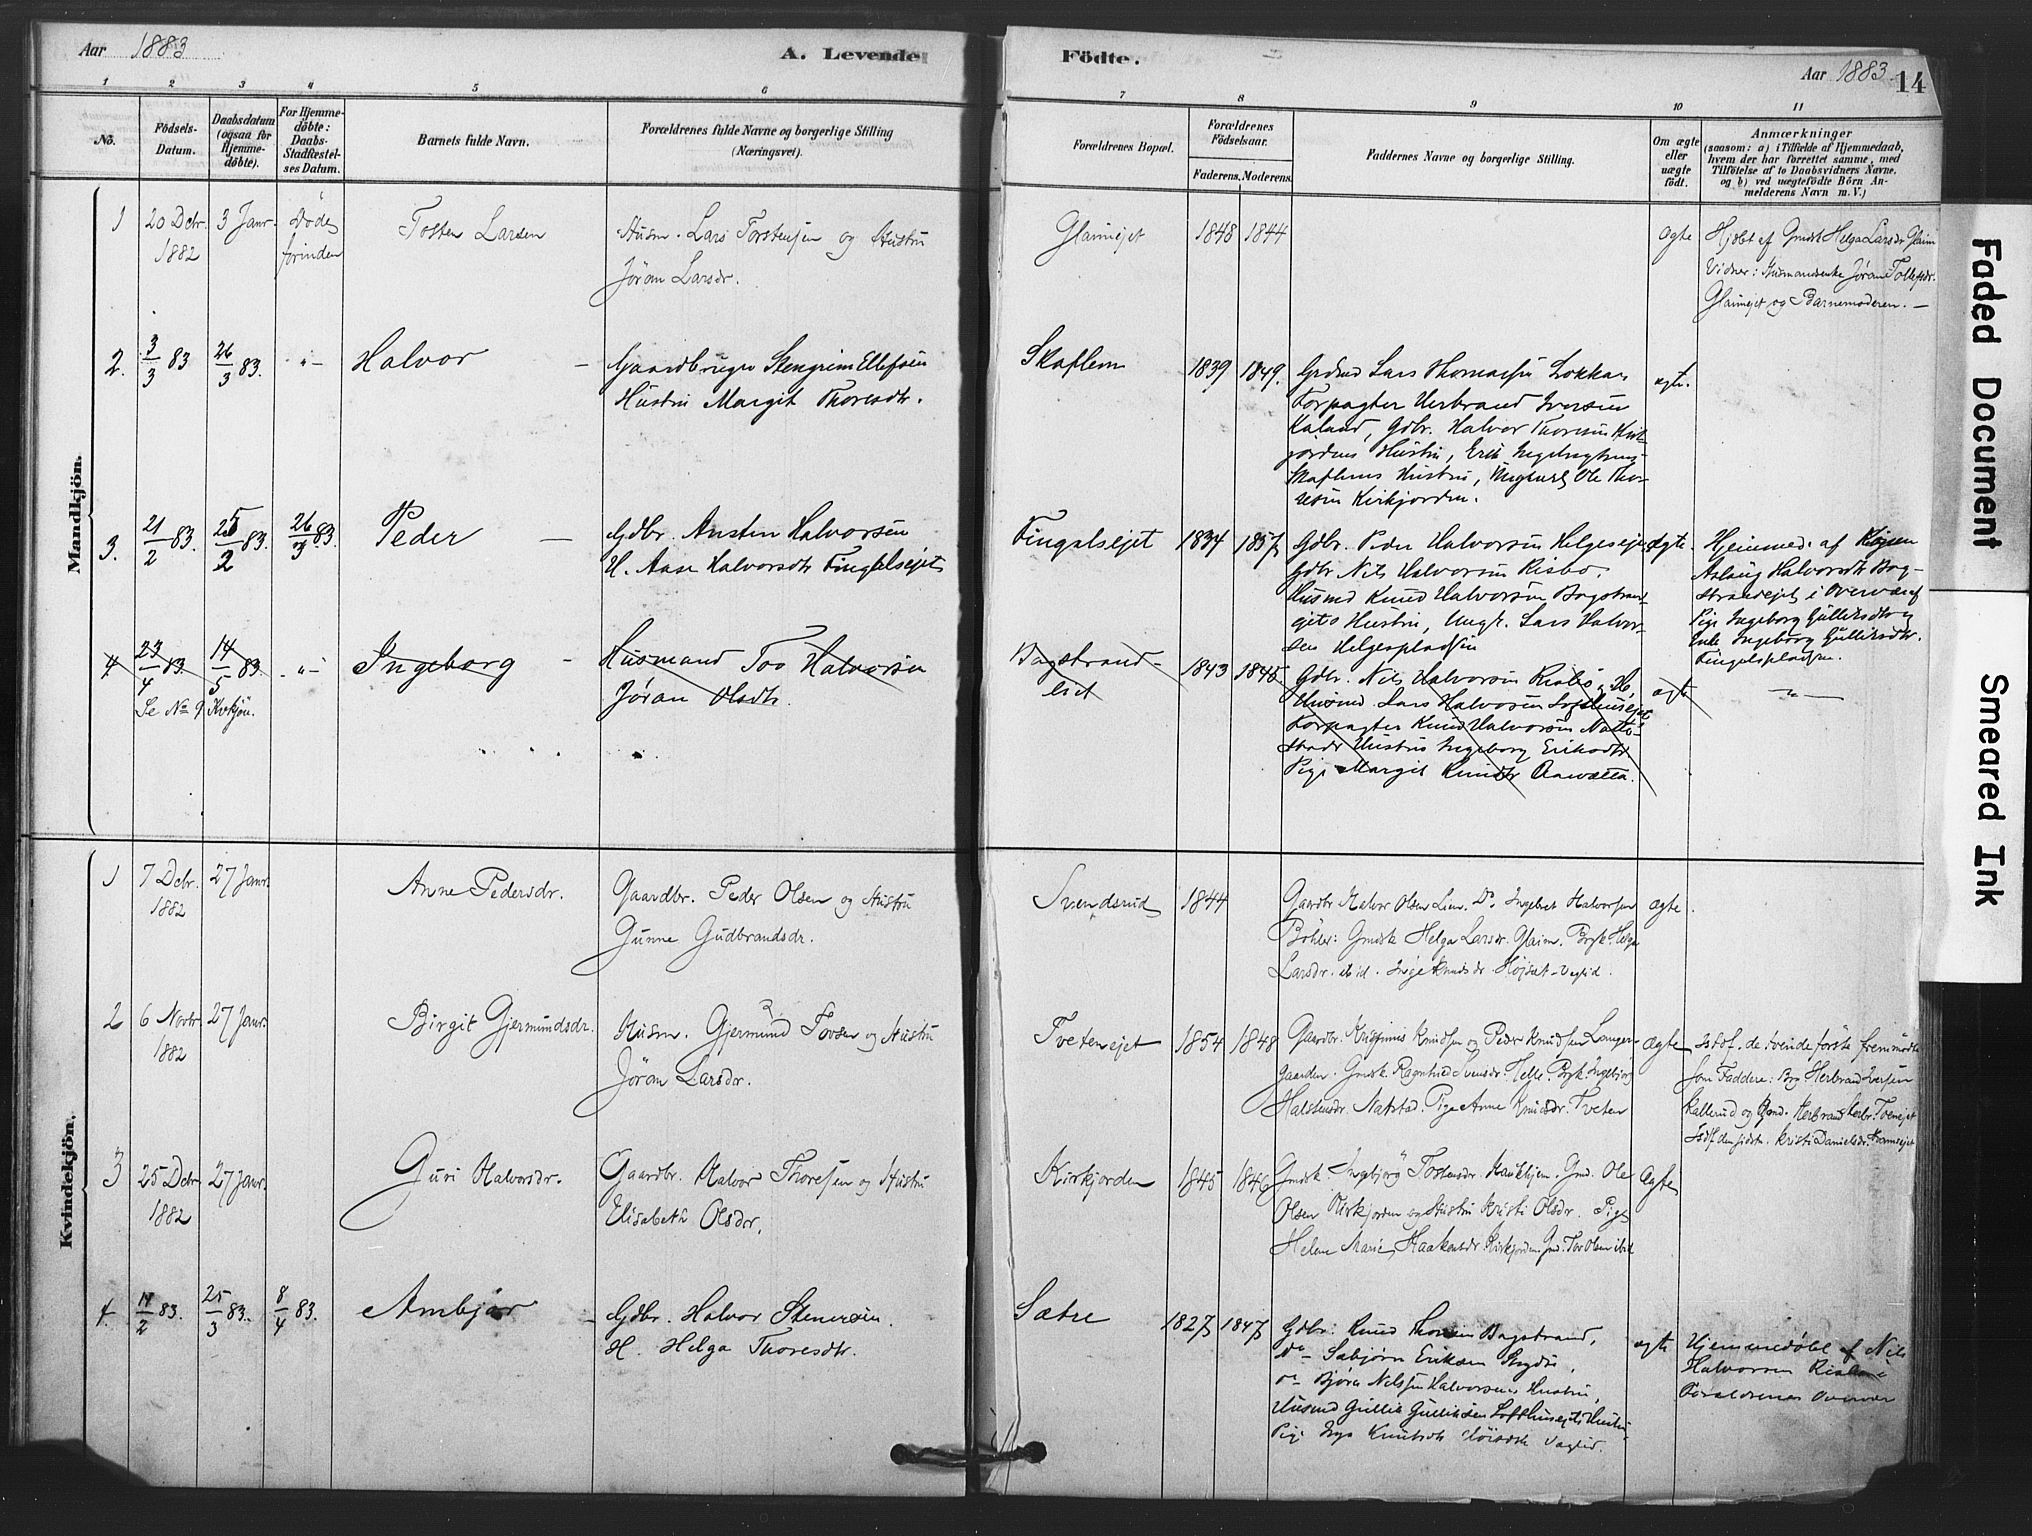 Aar 1883
A. Levende
Födte.
Aar 1883
14
1
2
3
4
5
6
7
8
9
10
11
No.
Födsels-
Datum.
Daabsdatum
(ogsaa for
Hjemme-
döbte).
For Hjemme-
döbte:
Daabs-
Stadfæstel-
ses Datum.
Barnets fulde Navn.
Forældrenes fulde Navne og borgerlige Stilling
(Næringsvei).
Forældrenes Bopæl.
Forældrenes
Födselsaar.
Faderens.
Moderens.
Faddernes Navne og borgerlige Stilling.
Om ægte
eller
uægte
födt.
Anmærkninger
(saasom: a) i Tilfælde af Hjemmedaab,
hvem der har forrettet samme, med
Tilföielse af to Daabsvidners Navne,
og b) ved uægtefödte Börn An-
melderens Navn m. V.)
Mandkjön.
1
20 Dcbr
1882
3 Janr.
Døde
forinden
Tosten Larsen
Husm. Lars Torstensen og Hustru
Jöran Larsdr.
Glaimejet
1848
1844
Ægte
Hjdbt af Gmdsk Helga Larsdr Glaim
Vidner: Husmandsenke Jöran Tollefsdr.
Glaimejet og Barnemoderen. —
2.
3/3 83
26/3 83.
Halvor
Gaardbruger Stengrim Ellefsen
Hustru Margit Thoresdtr.
Skaflem
1839
1849.
Grdmd Lars Thomassen
Forpagter Herbrand Iversen
Kaland, Gdbr. Halvor Thoresen Kirk-
jordens Hustru, Erik
Skaflems Hustru, Ungkarl Ole Tho-
resen Kirkjorden.
ægte.
3.
21/2 83.
25/2 83.
26/3 83.
Peder
Gdbr. Austen Halvorsen
H. Aase Halvorsdtr Fingalsejet
Fingalsejet
1834
1837
Gdbr. Peder Halvorsen Helgesejet
Gdbr Nils Halvorsen Risbø.
Husmd Knud Halvorsen Bagstrand-
ejets Hustru, Ungk. Lars Halvor-
sen Helgespladsen
Ægte.
Hjemmed. af Kojsen
Aslaug Halvorsdtr Bag-
strandejet i Overvær af
Pige Ingeborg Gulliksdtr og
Enke Ingeborg Gulliksdtr.
Fingalspladsen.
4
23/4 83
Se No 9 Kvkjön.
14/5 83
Ingeborg
Husmand Tov Halvorsen
Jøran Olsdtr.
Bagstrand-
eiet
1843
1845
Gdbr. Nils Halvorsen Risbø, H.
Husmd. Lars Halvorsen Lofthusejet
Forpagter Knud Halvorsen
Hustru Ingeborg Eriksdtr
Pige Margit Knudtr
ægte
Kvindekjön.
1
7 Dcbr.
1882
27 Janr.
Anne Pedersdr.
Gaardbr. Peder Olsen og Hustru
Gunne Gudbrandsdr.
Svendsrud
1844
Gaardbr Halvor Olsen Lien. Do Ingebret Halvorsen
Böhler: Gmdsk Helga Larsdr. Glaim. Pigk. Helga
Larsdr. ibid. Inge Knudsdr Höjset-Vaglid.
ægte
2
6 Novbr
1882
27 Janr.
Birgit Gjermundsdr.
Husm. Gjermund Tovsen og Hustru
Jöran Larsdr.
Tvetenejet
1854
1848
Gaardbr. Kristinus Knudsen og Peder Knudsen Langer-
gaarden. Gmdsk. Ragnhild Svensdr. Helle. Pigk. Ingebjörg
Halstensdr. Natstad. Pige Anne Knudsdr. Tveten
Ægte
Istdf. de tvende förste fremmödte
som Faddere: Brg Herbrand Iversen
Kallerud og Gmd. Herbrand Herbr. Tvetejet
Istdf den sidste. Kristi Danielsdr.
3
25 Dcbr
1882
27 Janr.
Guri Halvorsdr.
Gaardbr. Halvor Thoresen og Hustru
Elisabeth Olsdr.
Kirkjorden
1845
1846
Gmdsk. Ingebjörg Tostensdr. Haukhjem. Gmd. Ole
Olsen Kirkjorden og Hustru Kristi Olsdr. Pige
Helene Marie Haakensdr. Kirkjorden. Gmd. Tor Olsen ibid
Ægte
4.
11/2 83.
25/3 83.
8/4 83.
Ambjør
Gdbr. Halvor Stenersen.
H. Helga Thoresdtr.
Sætre
1827
1847
Gdbr. Knud Thoresen Bagstrand,
Do Sæbjørn Eriksen Bryden,
Do Bjørn Nilssen Halvorsens Hustru,
Husmd Gullik Gulliksen Lofthusejets Hustru
Pige Inga Knutsdtr Höisett Vaglid.
ægte
Hjemmedøbt af Nils
Halvorsen Risbø i
Forældrenes Overvær
Faded Document
Smeared Ink